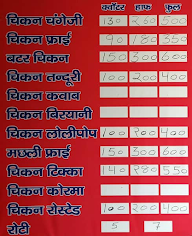 क्वॉटर हाफ फुल
चिकन चंगेजी 130 260 500
चिकन फ्राई 90 180 350
बटर चिकन 150 300 600
चिकन तन्दूरी 100 200 400
चिकन कबाब
चिकन बिरयानी
चिकन लोलीपोप 100 200 400
मछली फ्राई 150 300 600
चिकन टिक्का 140 280 550
चिकन कोरमा
चिकन रोस्टेड 100 200 400
रोटी 5 7